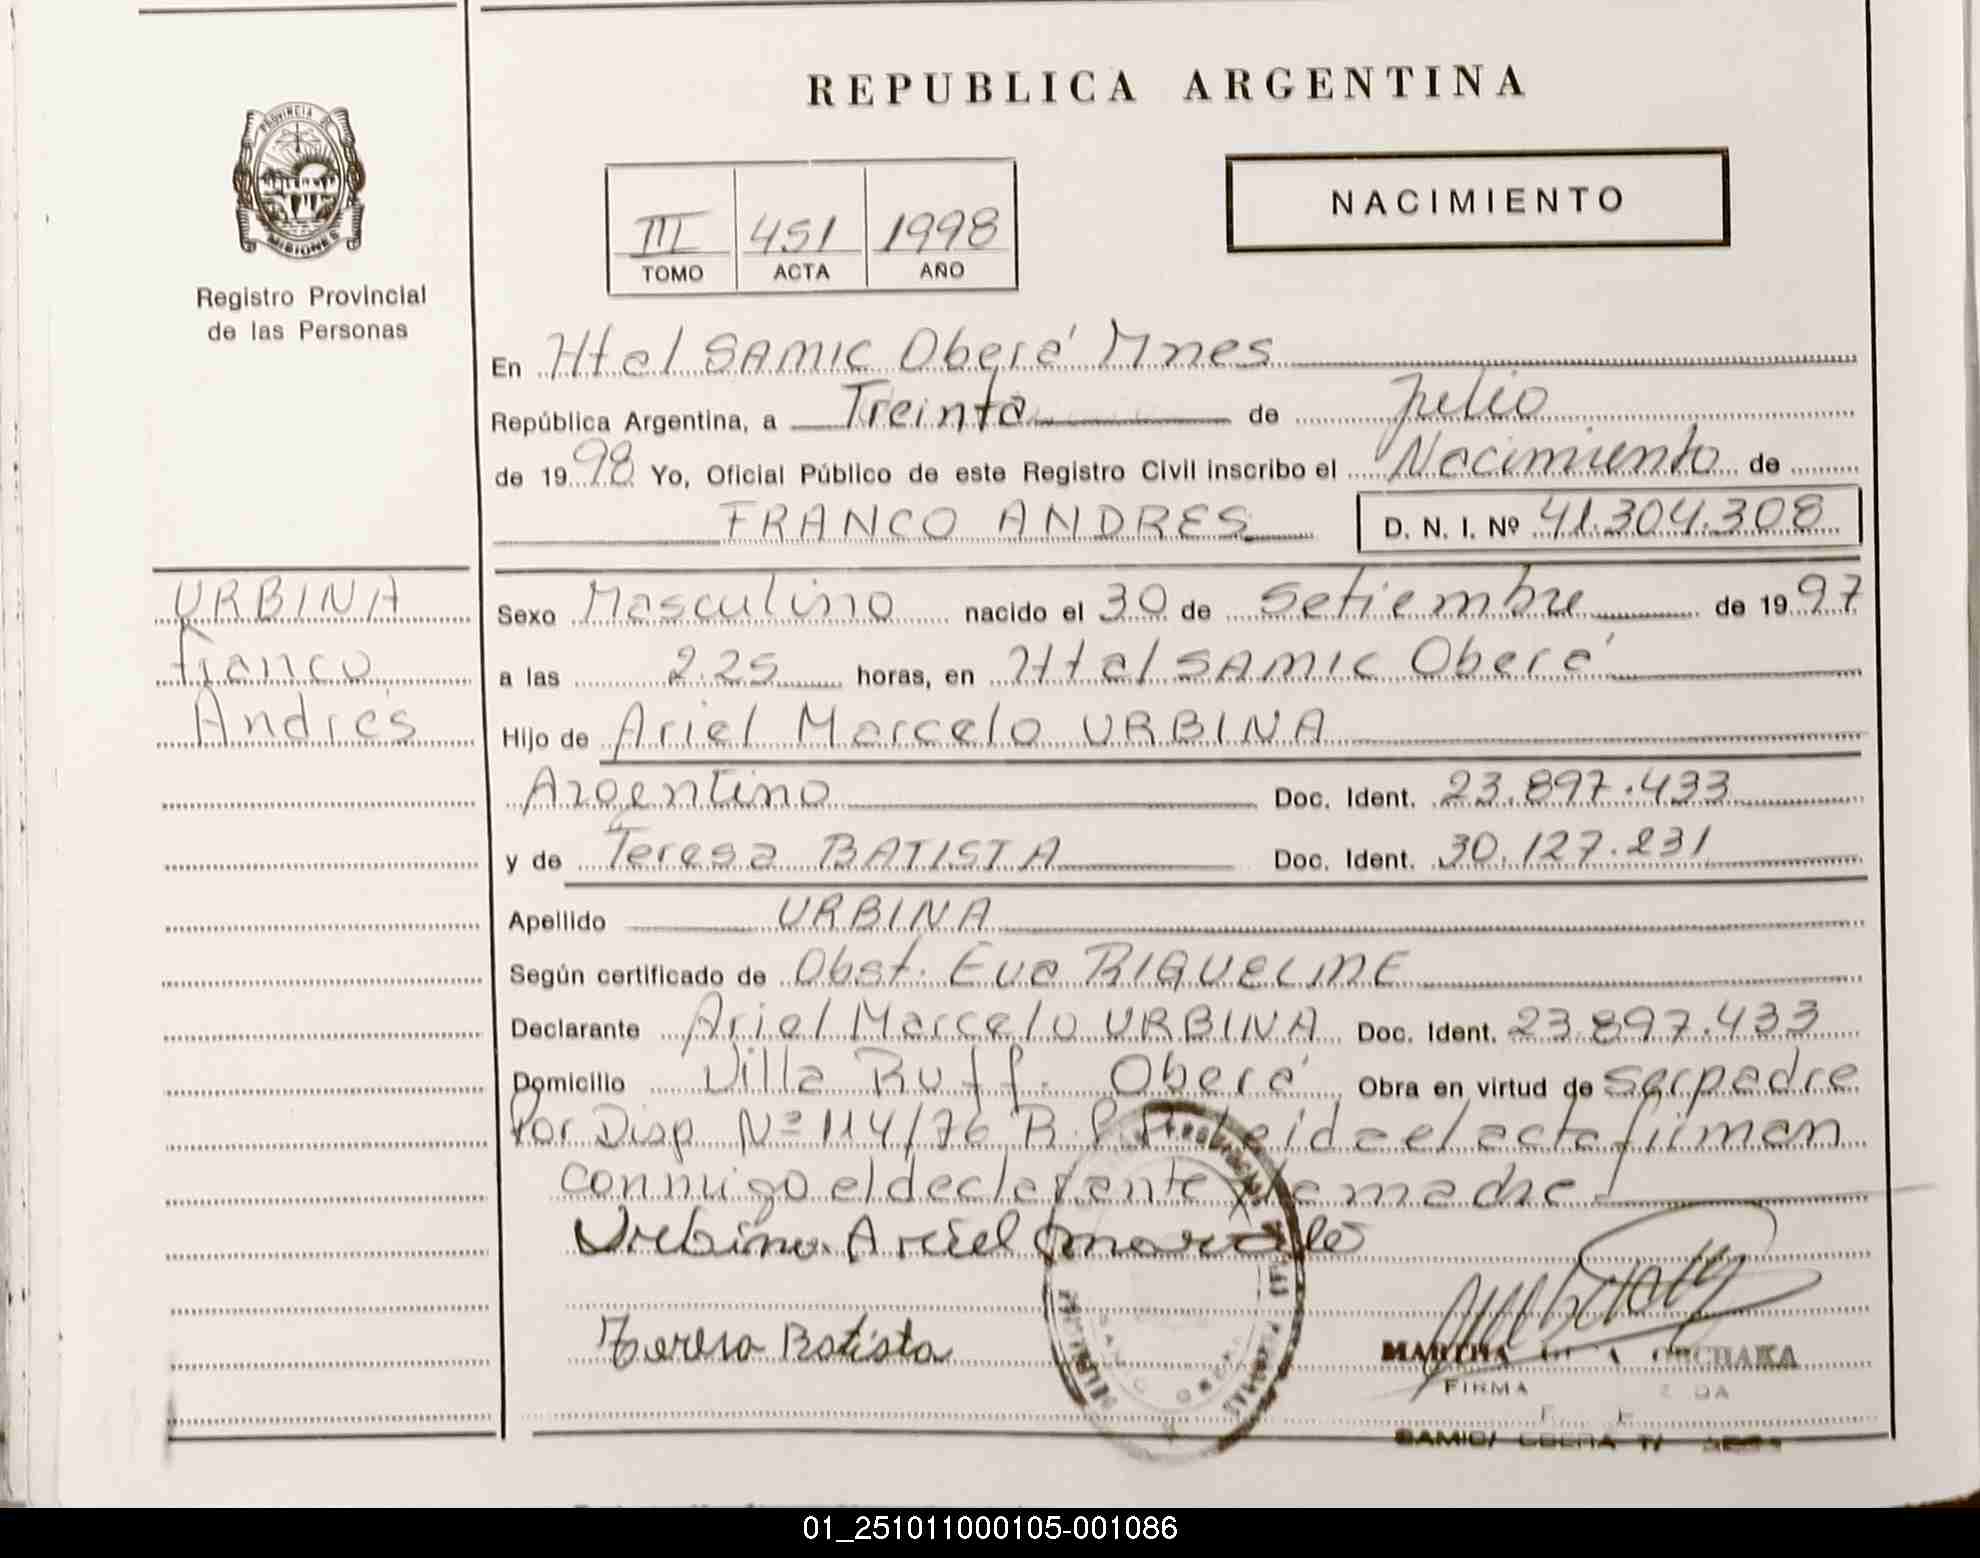 REPUBLICA ARGENTINA
PROVINCIA DE
MISIONES
Registro Provincial
de las Personas
NACIMIENTO
III 451 1998
TOMO ACTA AÑO
En Htal SAMIC Oberá Mnes
República Argentina, a Treinta de Julio
de 1998 Yo, Oficial Público de este Registro Civil inscribo el Nacimiento de
FRANCO ANDRES D. N. I. Nº 41.304.308
URBINA
Franco
Andrés
Sexo Masculino nacido el 30 de Setiembre de 1997
a las 2.25 horas, en Htal SAMIC Oberá
Hijo de Ariel Marcelo URBINA
Argentino Doc. Ident. 23.897.433
y de Teresa BATISTA Doc. Ident. 30.127.231
Apellido URBINA
Según certificado de Obst. Eva RIQUELME
Declarante Ariel Marcelo URBINA Doc. Ident. 23.897.433
Domicilio Villa Ruff. Oberá Obra en virtud de ser padre
Por Disp Nº 114/76 R.P.P. Leida el acta firman
conmigo el declarante y la madre
Urbina Ariel Marcelo
Teresa Batista
MARTHA
FIRMA
SAMIC/
01_251011000105-001086